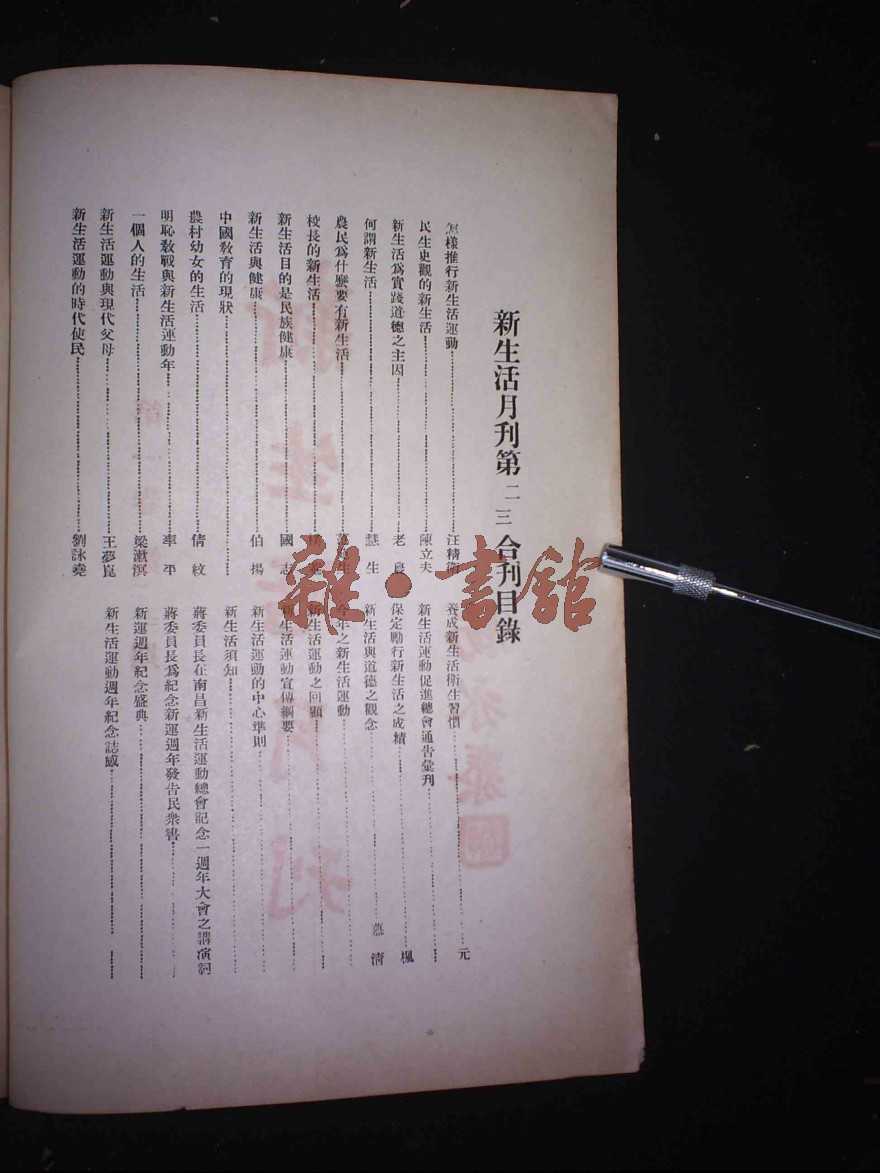 新生活月刊第二三合刊目錄
怎樣推行新生活運動 汪精衛
民生史觀的新生活 陳立夫
新生活爲實踐道德之主因 老
何謂新生活 慧生
農民爲什麼要有新生活 生
校長的新生活
新生活目的是民族健康 國志
新生活與健康 伯揚
中國教育的現狀
農村幼女的生活 倩紋
明恥教戰與新生活運動年 率平
一個人的生活 梁漱溟
新生活運動與現代父母 王夢崑
新生活運動的時代使民 劉詠堯
養成新生活衛生習慣 元
新生活運動促進總會通告彙刊
保定勵行新生活之成績 楓
新生活與道德之觀念 慕清
今年之新生活運動
新生活運動之回顧
新生活運動宣傳綱要
新生活運動的中心準則
新生活須知
蔣委員長在南昌新生活運動總會記念一週年大會之講演詞
蔣委員長爲紀念新運週年發告民衆書
新運週年紀念盛典
新生活運動週年紀念誌感
雜·書館